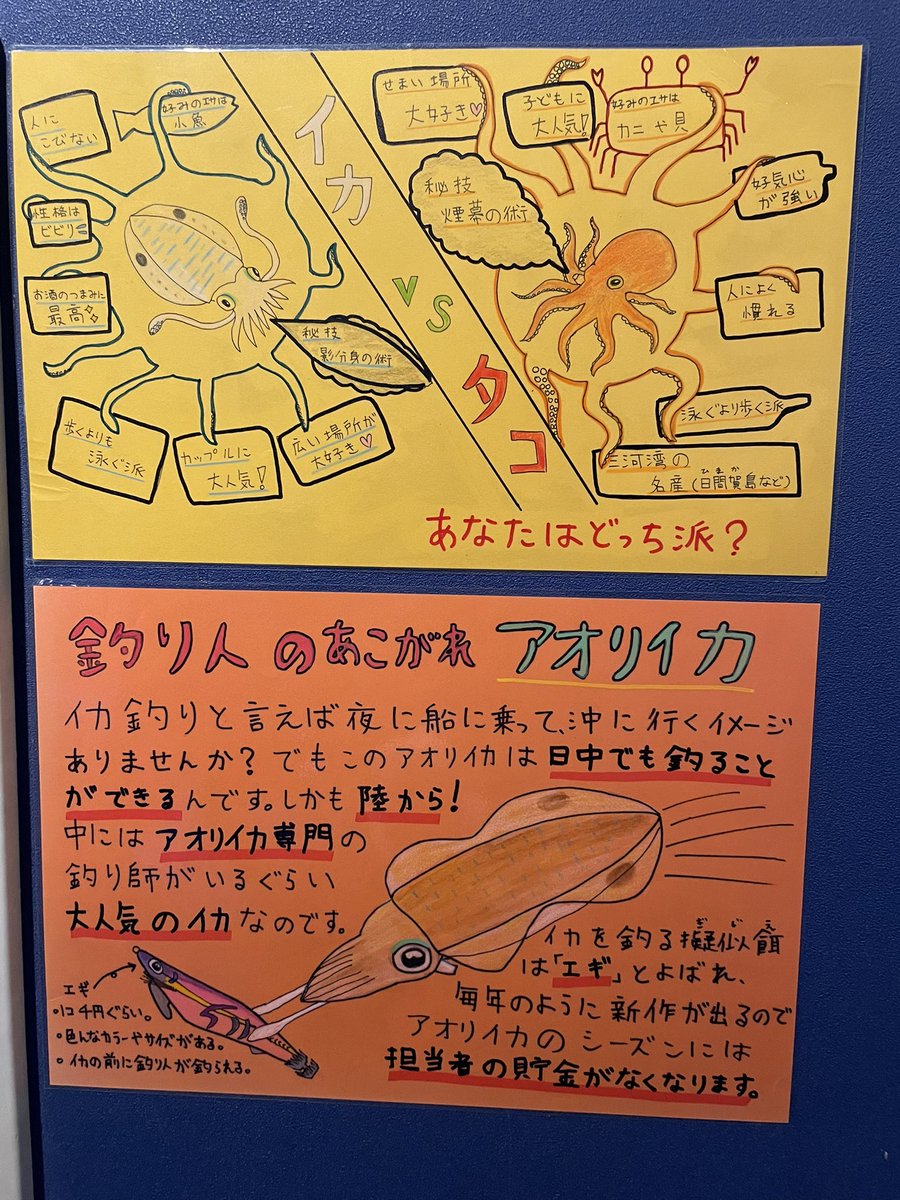 イカ vs タコ
人に
こびない
好みのエサは
小魚
性格は
ビビリ
お酒のつまみに
最高
秘技
影分身の術
歩くよりも
泳ぐ派
カップルに
大人気!
広い場所が
大好き♡
せまい場所
大好き♡
子どもに
大人気!
好みのエサは
カニや貝
秘技
煙幕の術
好気心
が強い
人によく
慣れる
泳ぐより歩く派
三河湾の
名産(日間賀島など)
ひまか
あなたはどっち派?
釣り人のあこがれ アオリイカ
イカ釣りと言えば夜に船に乗って、沖に行くイメージ
ありませんか?でもこのアオリイカは日中でも釣ること
ができるんです。しかも陸から!
中にはアオリイカ専門の
釣り師がいるぐらい
大人気のイカなのです。
イカを釣る擬似餌
ぎじえ
は「エギ」とよばれ、
毎年のように新作が出るので
アオリイカのシーズンには
担当者の貯金がなくなります。
エギ
・1コ千円ぐらい。
・色んなカラーやサイズがある。
・イカの前に釣り人が釣られる。